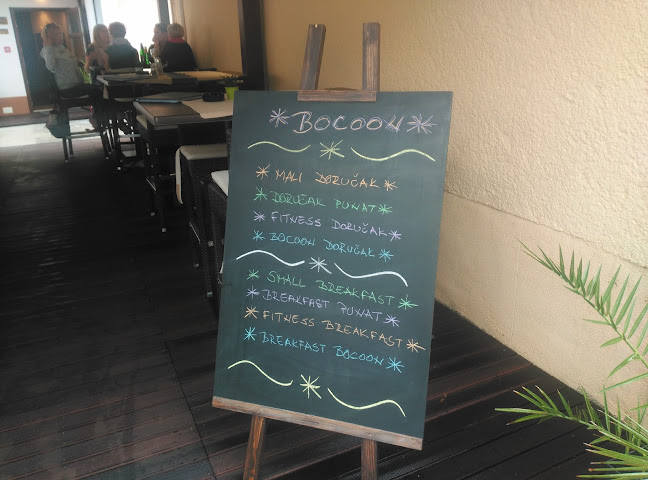 BOCOON
MALI DORUČAK
DORUČAK PUNAT
FITNESS DORUČAK
BOCOON DORUČAK
SMALL BREAKFAST
BREAKFAST PUNAT
FITNESS BREAKFAST
BREAKFAST BOCOON